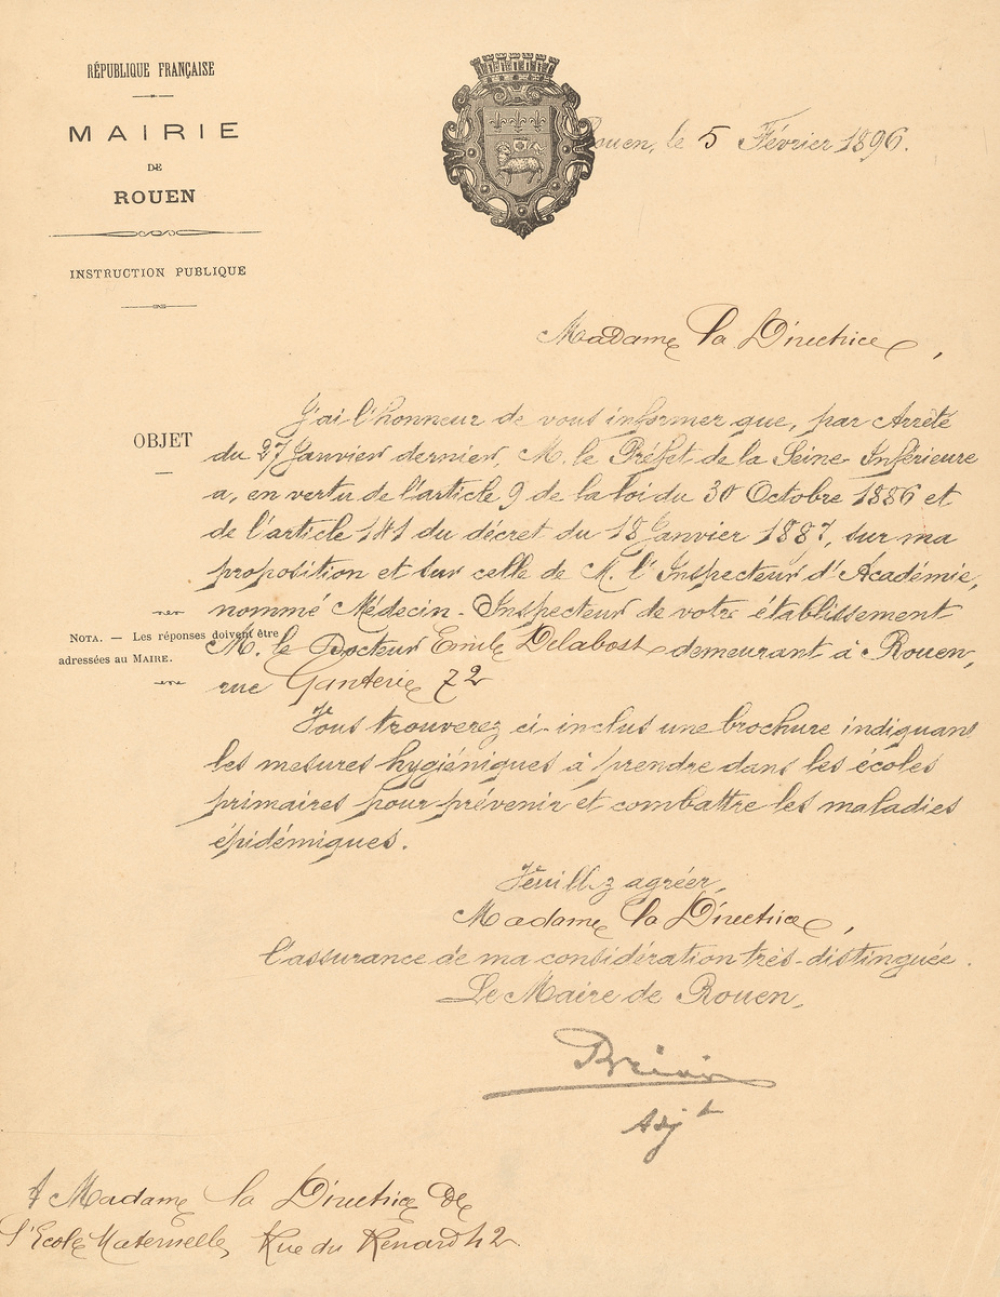 RÉPUBLIQUE FRANÇAISE
MAIRIE
DE
ROUEN
INSTRUCTION PUBLIQUE
Rouen, le 5 Février 1896.
Madame la Directrice,
OBJET
J'ai l'honneur de vous informer que, par Arrêté
du 27 Janvier dernier, M. le Préfet de la Seine-Inférieure
a, en vertu de l'article 9 de la loi du 30 Octobre 1886 et
de l'article 141 du décret du 18 Janvier 1887, sur ma
proposition et sur celle de M. l'Inspecteur d'Académie,
nommé Médecin-Inspecteur de votre établissement
M. le Docteur Emile Delabost demeurant à Rouen,
rue Ganterie 72
NOTA. — Les réponses doivent être
adressées au MAIRE.
Vous trouverez ci-inclus une brochure indiquant
les mesures hygiéniques à prendre dans les écoles
primaires pour prévenir et combattre les maladies
épidémiques.
Veuillez agréer,
Madame la Directrice,
l'assurance de ma considération très-distinguée.
Le Maire de Rouen,
Adjt
A Madame la Directrice de
l'Ecole Maternelle, Rue du Renard 42